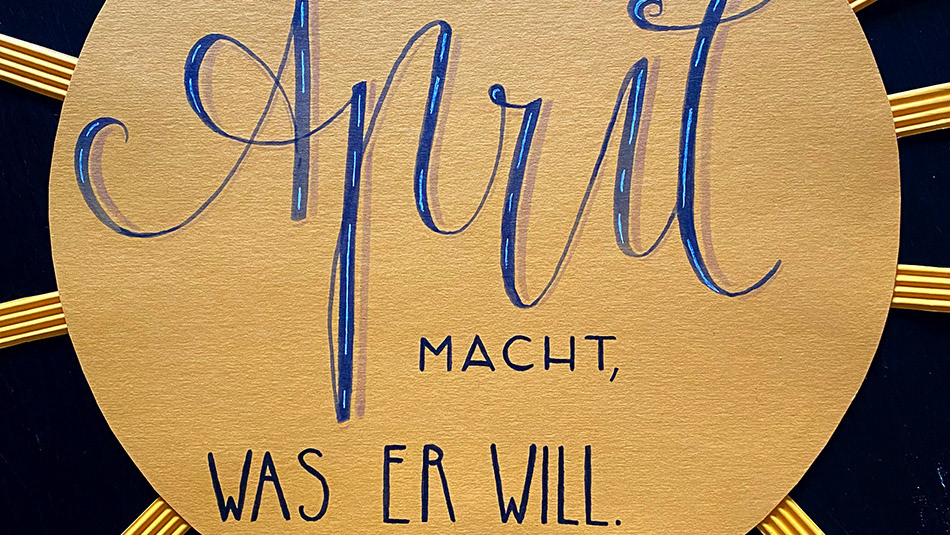 April
MACHT,
WAS ER WILL.